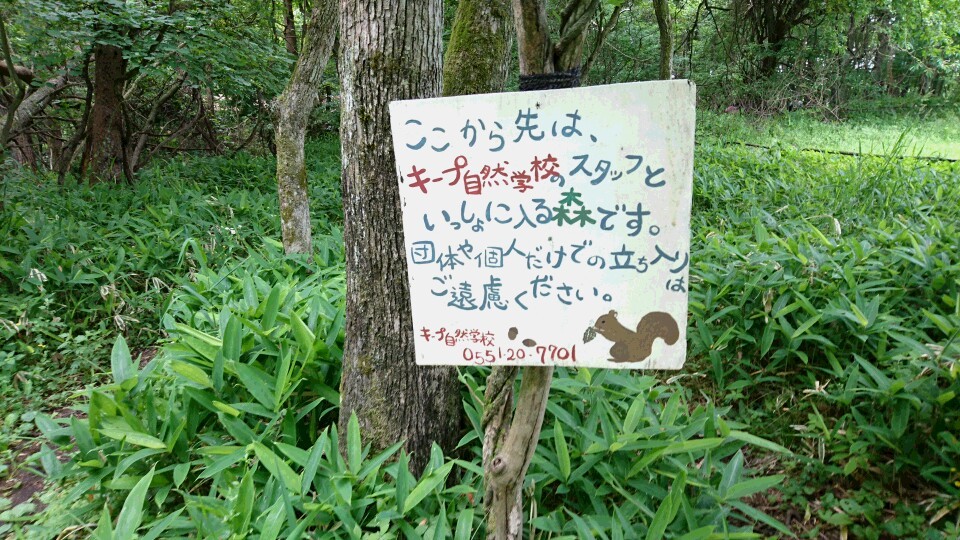 ここから先は、
キープ自然学校のスタッフと
いっしょに入る森です。
団体や個人だけでの立ち入りは
ご遠慮ください。
キープ自然学校
0551-20-7701